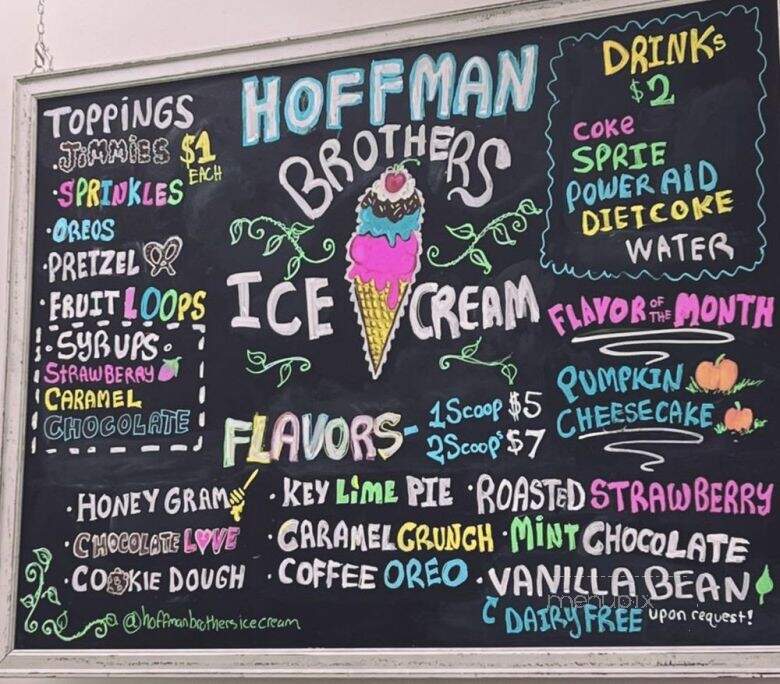 TOPPiNGS
·JiMMiES $1
EACH
·SPRINKLES
·OREOS
·PRETZEL
·FRUIT LOOPS
·SYRUPS·
STRAWBERRY
CARAMEL
CHOCOLATE
HOFFMAN
BROTHERS
ICE CREAM
DRINKs
$2
COKe
SPRIE
POWER AiD
DIET COKE
WATER
FLAVOR OF THE MONTH
PUMPKIN
CHEESECAKE
FLAVORS- 1 Scoop $5
2 Scoops $7
·HONEY GRAM
·CHOCOLATE LOVE
·COOKIE DOUGH
·KEY LiME PIE
·CARAMEL CRUNCH
·COFFEE OREO
·ROASTED STRAWBERRY
·MiNT CHOCOLATE
·VANILLA BEAN
DAIRY FREE upon request!
@hoffmanbrothersicecream
menupix